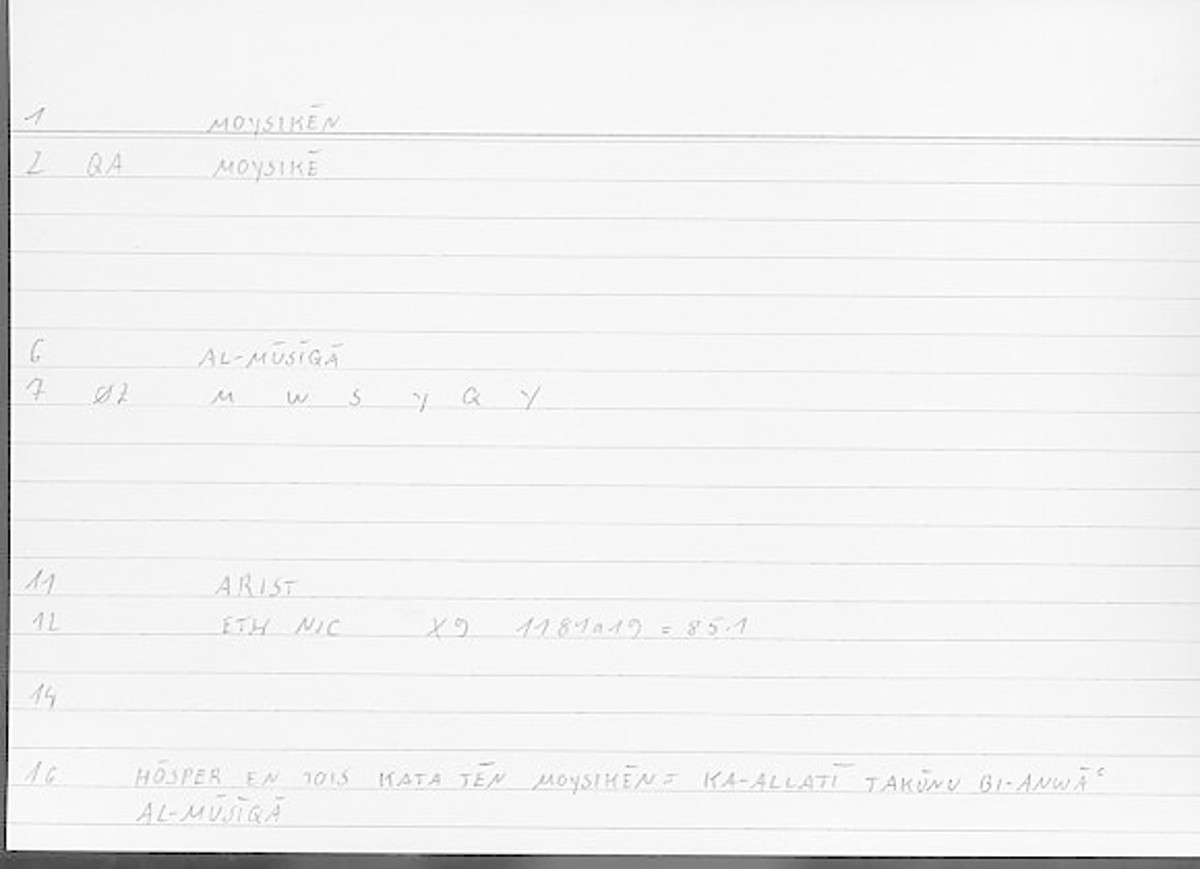 1 MOYSIKĒN
2 QA MOYSIKĒ
6 AL-MŪSĪQĀ
7 ØZ M W S Y Q Y
11 ARIST
12 ETH NIC X9 1181a19 = 85.1
14
16 HŌSPER EN TOIS KATA TĒN MOYSIKĒN = KA-ALLATĪ TAKŪNU BI-ANWĀʿ
AL-MŪSĪQĀ